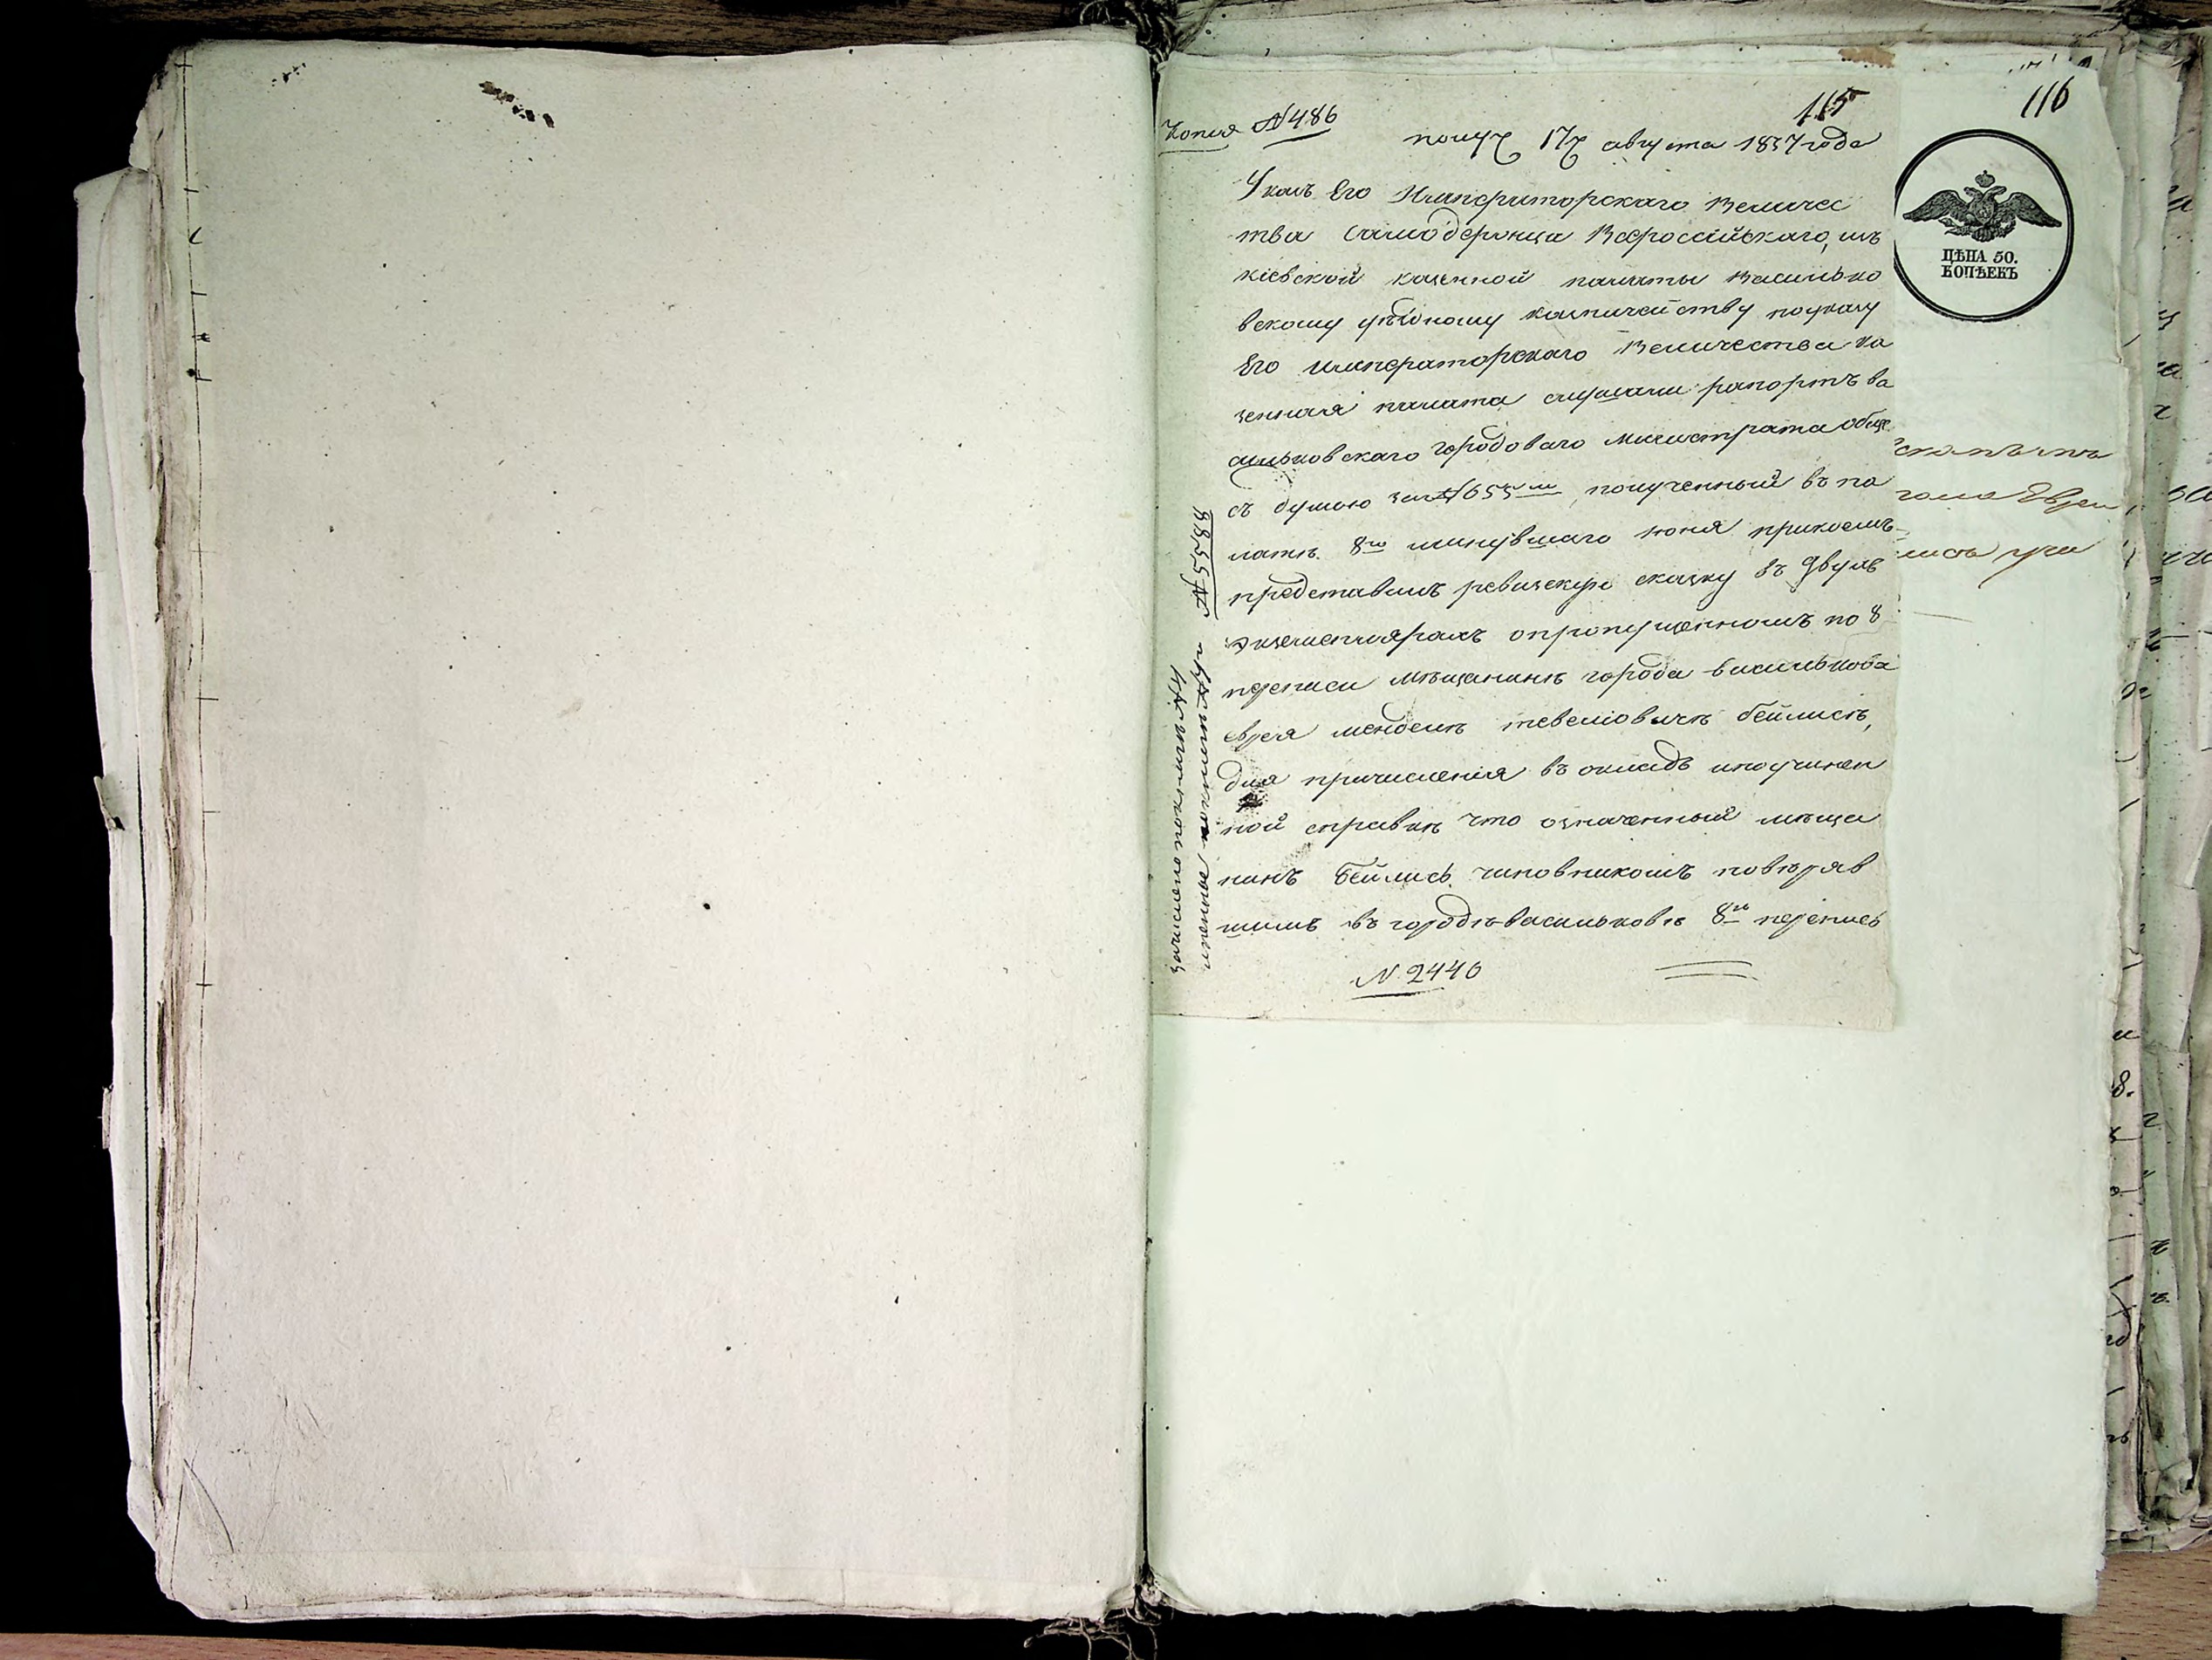 Копия №486
115
116
получ 17 августа 1837 года
Указъ Его Императорскаго Величес
тва Самодержца Всероссійскаго, изъ
кіевской казенной палаты Василько
вскому уѣздному казначейству по указу
Его Императорскаго Величества ка
зенная палата слушали рапортъ ва
сильковскаго городоваго магистрата обще
съ думою за №655м полученный въ па
латѣ 8го минувшаго июня прикоемъ
представилъ ревизскую сказку въ двухъ
экземплярахъ опропущенномъ по 8
переписи мѣщанинѣ города василькова
еврея менделѣ тевелiовичѣ бейлисѣ,
для причисленія въ окладъ ипоучинен
ной справкѣ что означенный мѣща
нинъ Бейлись чиновникомъ повѣряв
шимъ въ городѣ василькове 8ю перепись
N 2440
зачислено
ЦѢНА 50.
КОПѢЕКЪ